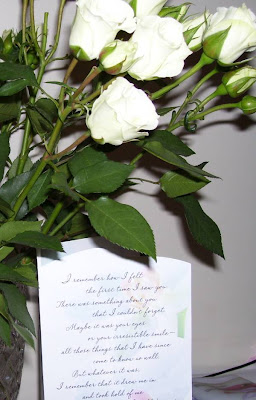 I remember how I felt
the first time I saw you.
There was something about you
that I couldn't forget.
Maybe it was your eyes
or your irresistible smile—
all those things that I have since
come to know so well.
But whatever it was,
I remember that it drew me in
and took hold of me